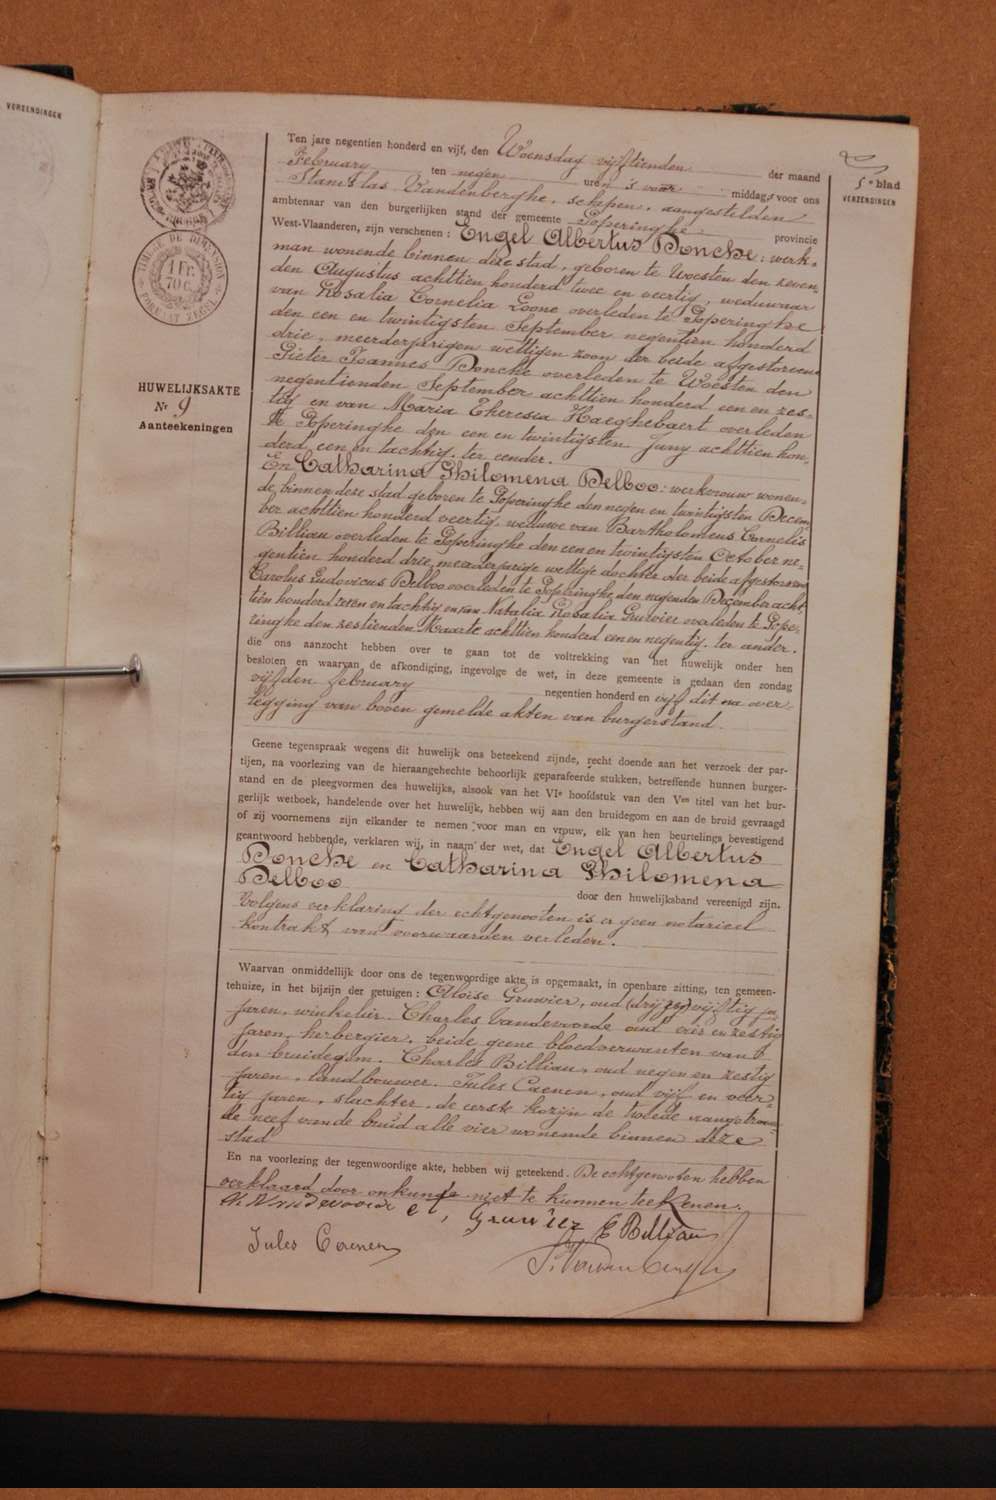 VERZENDINGEN
TIMBRE DE DIMENSION
1 Fr. 70 c.
FORMAAT ZEGEL
HUWELIJKSAKTE
Nr 9
Aanteekeningen
5e blad
VERZENDINGEN
Ten jare negentien honderd en vijf, den Woensdag vijftienden der maand
February ten negen uren 's voor middags voor ons
Stanislas Vandenberghe, schepen, aangestelden
ambtenaar van den burgerlijken stand der gemeente Poperinghe provincie
West-Vlaanderen, zijn verschenen : Engel Albertus Doncke : werk-
man wonende binnen deze stad, geboren te Woesten den zeven
den Augustus achttien honderd twee en veertig, weduwaar
van Rosalia Cornelia Loone overleden te Poperinghe
den een en twintigsten September negentien honderd
drie, meerderjarigen wettigen zoon der beide afgestorven
Pieter Joannes Doncke overleden te Woesten den
negentienden September achttien honderd een en zes-
tig en van Maria Theresia Haeghebaert overleden
te Poperinghe den een en twintigsten Juny achttien hon-
derd een en tachtig. ter eender.
En Catharina Philomena Delboo : werkvrouw wonen-
de binnen deze stad geboren te Poperinghe den negen en twintigsten Decem
ber achttien honderd veertig, weduwe van Bartholomeus Cornelis
Billiau overleden te Poperinghe den een en twintigsten October ne-
gentien honderd drie, meerderjarige wettige dochter der beide afgestorven
Carolus Ludovicus Delboo overleden te Poperinghe, den negenden December acht
tien honderd zeven en tachtig en van Natalia Rosalia Gruwier overleden te Pope-
ringhe den zestienden Maarte achttien honderd een en negentig. ter ander.
die ons aanzocht hebben over te gaan tot de voltrekking van het huwelijk onder hen
besloten en waarvan de afkondiging, ingevolge de wet, in deze gemeente is gedaan den zondag
vijfden february negentien honderd en vijf dit na over-
legging van boven gemelde akten van burgerstand.
Geene tegenspraak wegens dit huwelijk ons beteekend zijnde, recht doende aan het verzoek der par-
tijen, na voorlezing van de hieraangehechte behoorlijk geparafeerde stukken, betreffende hunnen burger-
stand en de pleegvormen des huwelijks, alsook van het VIe hoofdstuk van den Ven titel van het bur-
gerlijk wetboek, handelende over het huwelijk, hebben wij aan den bruidegom en aan de bruid gevraagd
of zij voornemens zijn elkander te nemen voor man en vrouw, elk van hen beurtelings bevestigend
geantwoord hebbende, verklaren wij, in naam der wet, dat Engel Albertus
Doncke en Catharina Philomena
Delboo door den huwelijksband vereenigd zijn.
Volgens verklaring der echtgenooten is er geen notarieel
kontrakt van voorwaarden verleden.
Waarvan onmiddellijk door ons de tegenwoordige akte is opgemaakt, in openbare zitting, ten gemeen-
tehuize, in het bijzijn der getuigen : Aloïse Gruwier, oud vijftig
jaren, winkelier. Charles Vandevoorde oud vier en zestig
jaren, herbergier, beide geene bloedverwanten van
den bruidegom. Charles Billiau, oud negen en zestig
jaren, landbouwer. Jules Caenen, oud vijf en veer-
tig jaren, slachter. de eerste kozijn de tweede aangetrouw-
de neef van de bruid alle vier wonende binnen deze
stad
En na voorlezing der tegenwoordige akte, hebben wij geteekend. De echtgenooten hebben
verklaard door onkunde niet te kunnen teekenen.
Vandevoorde A. Gruwier C Billiau
Jules Coenen